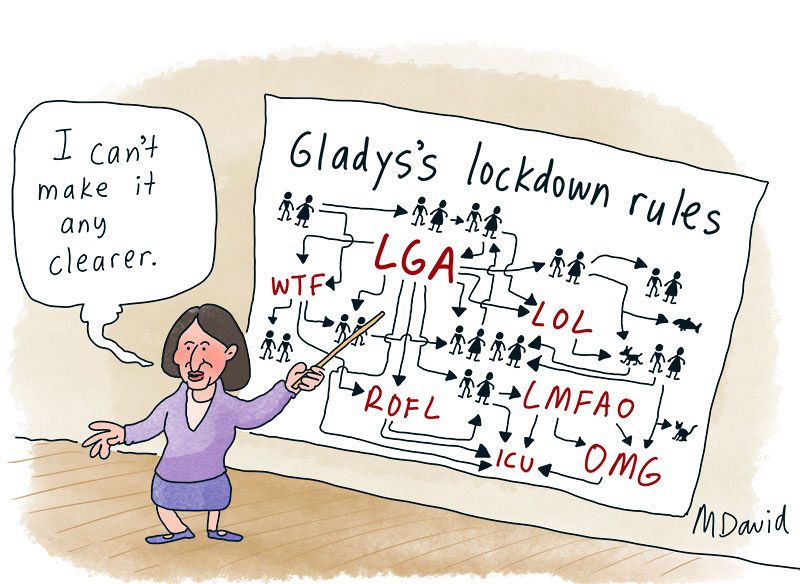 I can't
make it
any
clearer.
Gladys's lockdown rules
LGA
WTF
LOL
ROFL
LMFAO
ICU
OMG
MDavid